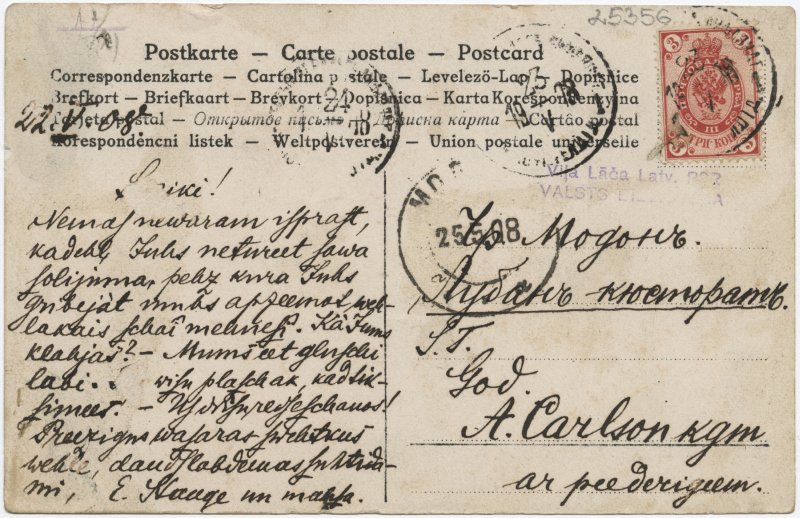 25356
Postkarte – Carte postale – Postcard
Correspondenzkarte – Cartolina postale – Levelező-Lap – Dopisnice
Brefkort – Briefkaart – Brevkort – Dopisnica – Karta Korespondencyjna
Tarjeta postal – Открытое письмо – Дописна карта – Cartão postal
Korespondenční listek – Weltpostverein – Union postale universelle
22. 08.
24
25
3
III
Vija Lāča Latv.
VALSTS
25 5 08
Nemas newaram isprast,
kadehļ Juhs netureet sawa
solijuma, pehz kura Juhs
gribejāt muhs apzeemot weh-
lakais schai mehnesi. Kā Jums
klahjas? – Mums eet gluschi
labi.. wisu plaschak, kad tik-
simees. – Us drihsu redseschanos!
Preezigus wasaras swehtkus
wehle, daudslabdeenas suhtida-
mi, E. Stauge un mahsa.
Гр. Модонъ.
Луданъ кюсторатъ.
God.
A. Carlson kgm
ar peederigeem.